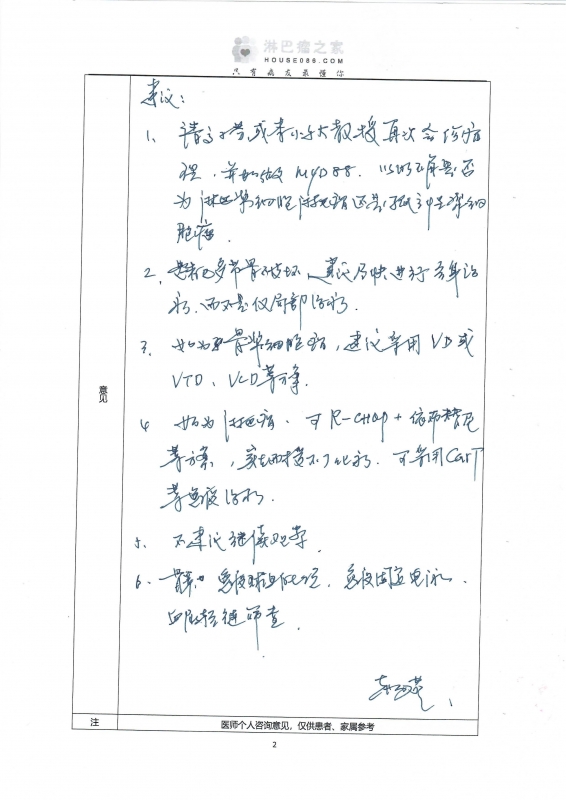 淋巴瘤之家
HOUSE086.COM
只有病友最懂你
建议:
1、请 或李 大教授再次会诊病
理,并加做 MYD88. 以明确是否
为淋巴浆细胞淋巴瘤还是 浆细
胞瘤.
2、患者已多节骨破坏、建议尽快进行 治
疗、而不是仅局部治疗.
3、如为 骨浆细胞瘤,建议采用 VD 或
VTD、VCD等方案.
4 如为淋巴瘤.可R-CHOP+依布替尼
等方案, 化疗.可采用CarT
等免疫治疗.
5、不建议继续观察.
6、 免疫球蛋白 ,免疫固定电泳、
血 轻链 查.
意见
注
医师个人咨询意见,仅供患者、家属参考
2